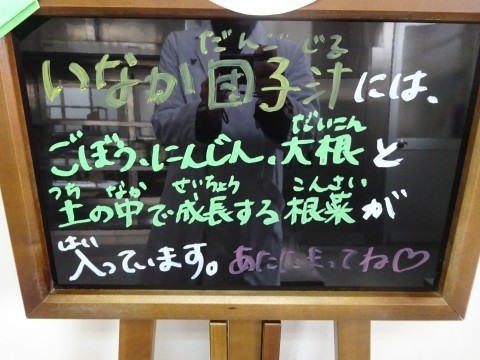 だんごじる
いなか団子汁には、
だいこん
ごぼう、にんじん、大根と
つち なか せいちょう こんさい
土の中で成長する根菜が
はい
入っています。あたたまってね♡